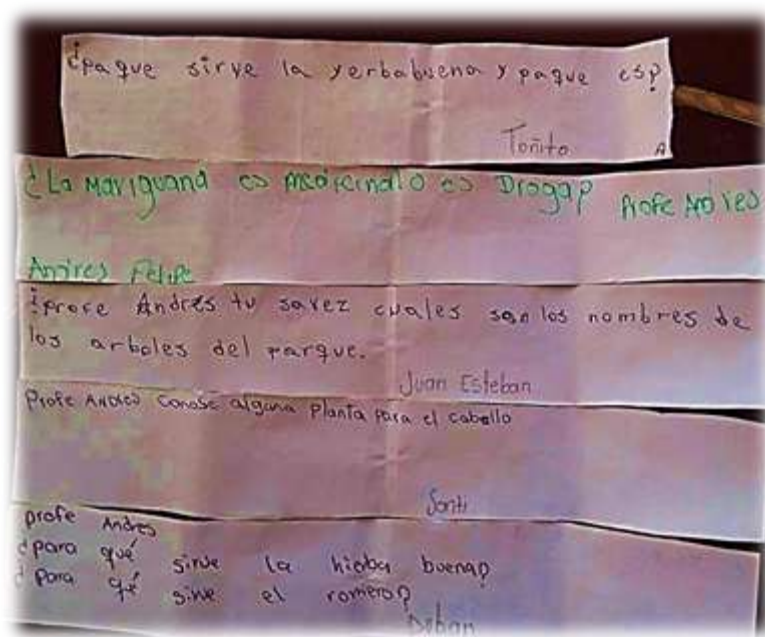 ¿paque sirve la yerbabuena y paque es?
Toñito
A
¿La Mariguana es medicinal o es Droga? Profe Andres
Andres Felipe
¿profe Andrés tu savez cuales son los nombres de
los arboles del parque.
Juan Esteban
Profe Andres Conose alguna planta para el cabello
Santi
profe Andres
¿para qué sirve la hierba buena?
¿Para qé sirve el romero?